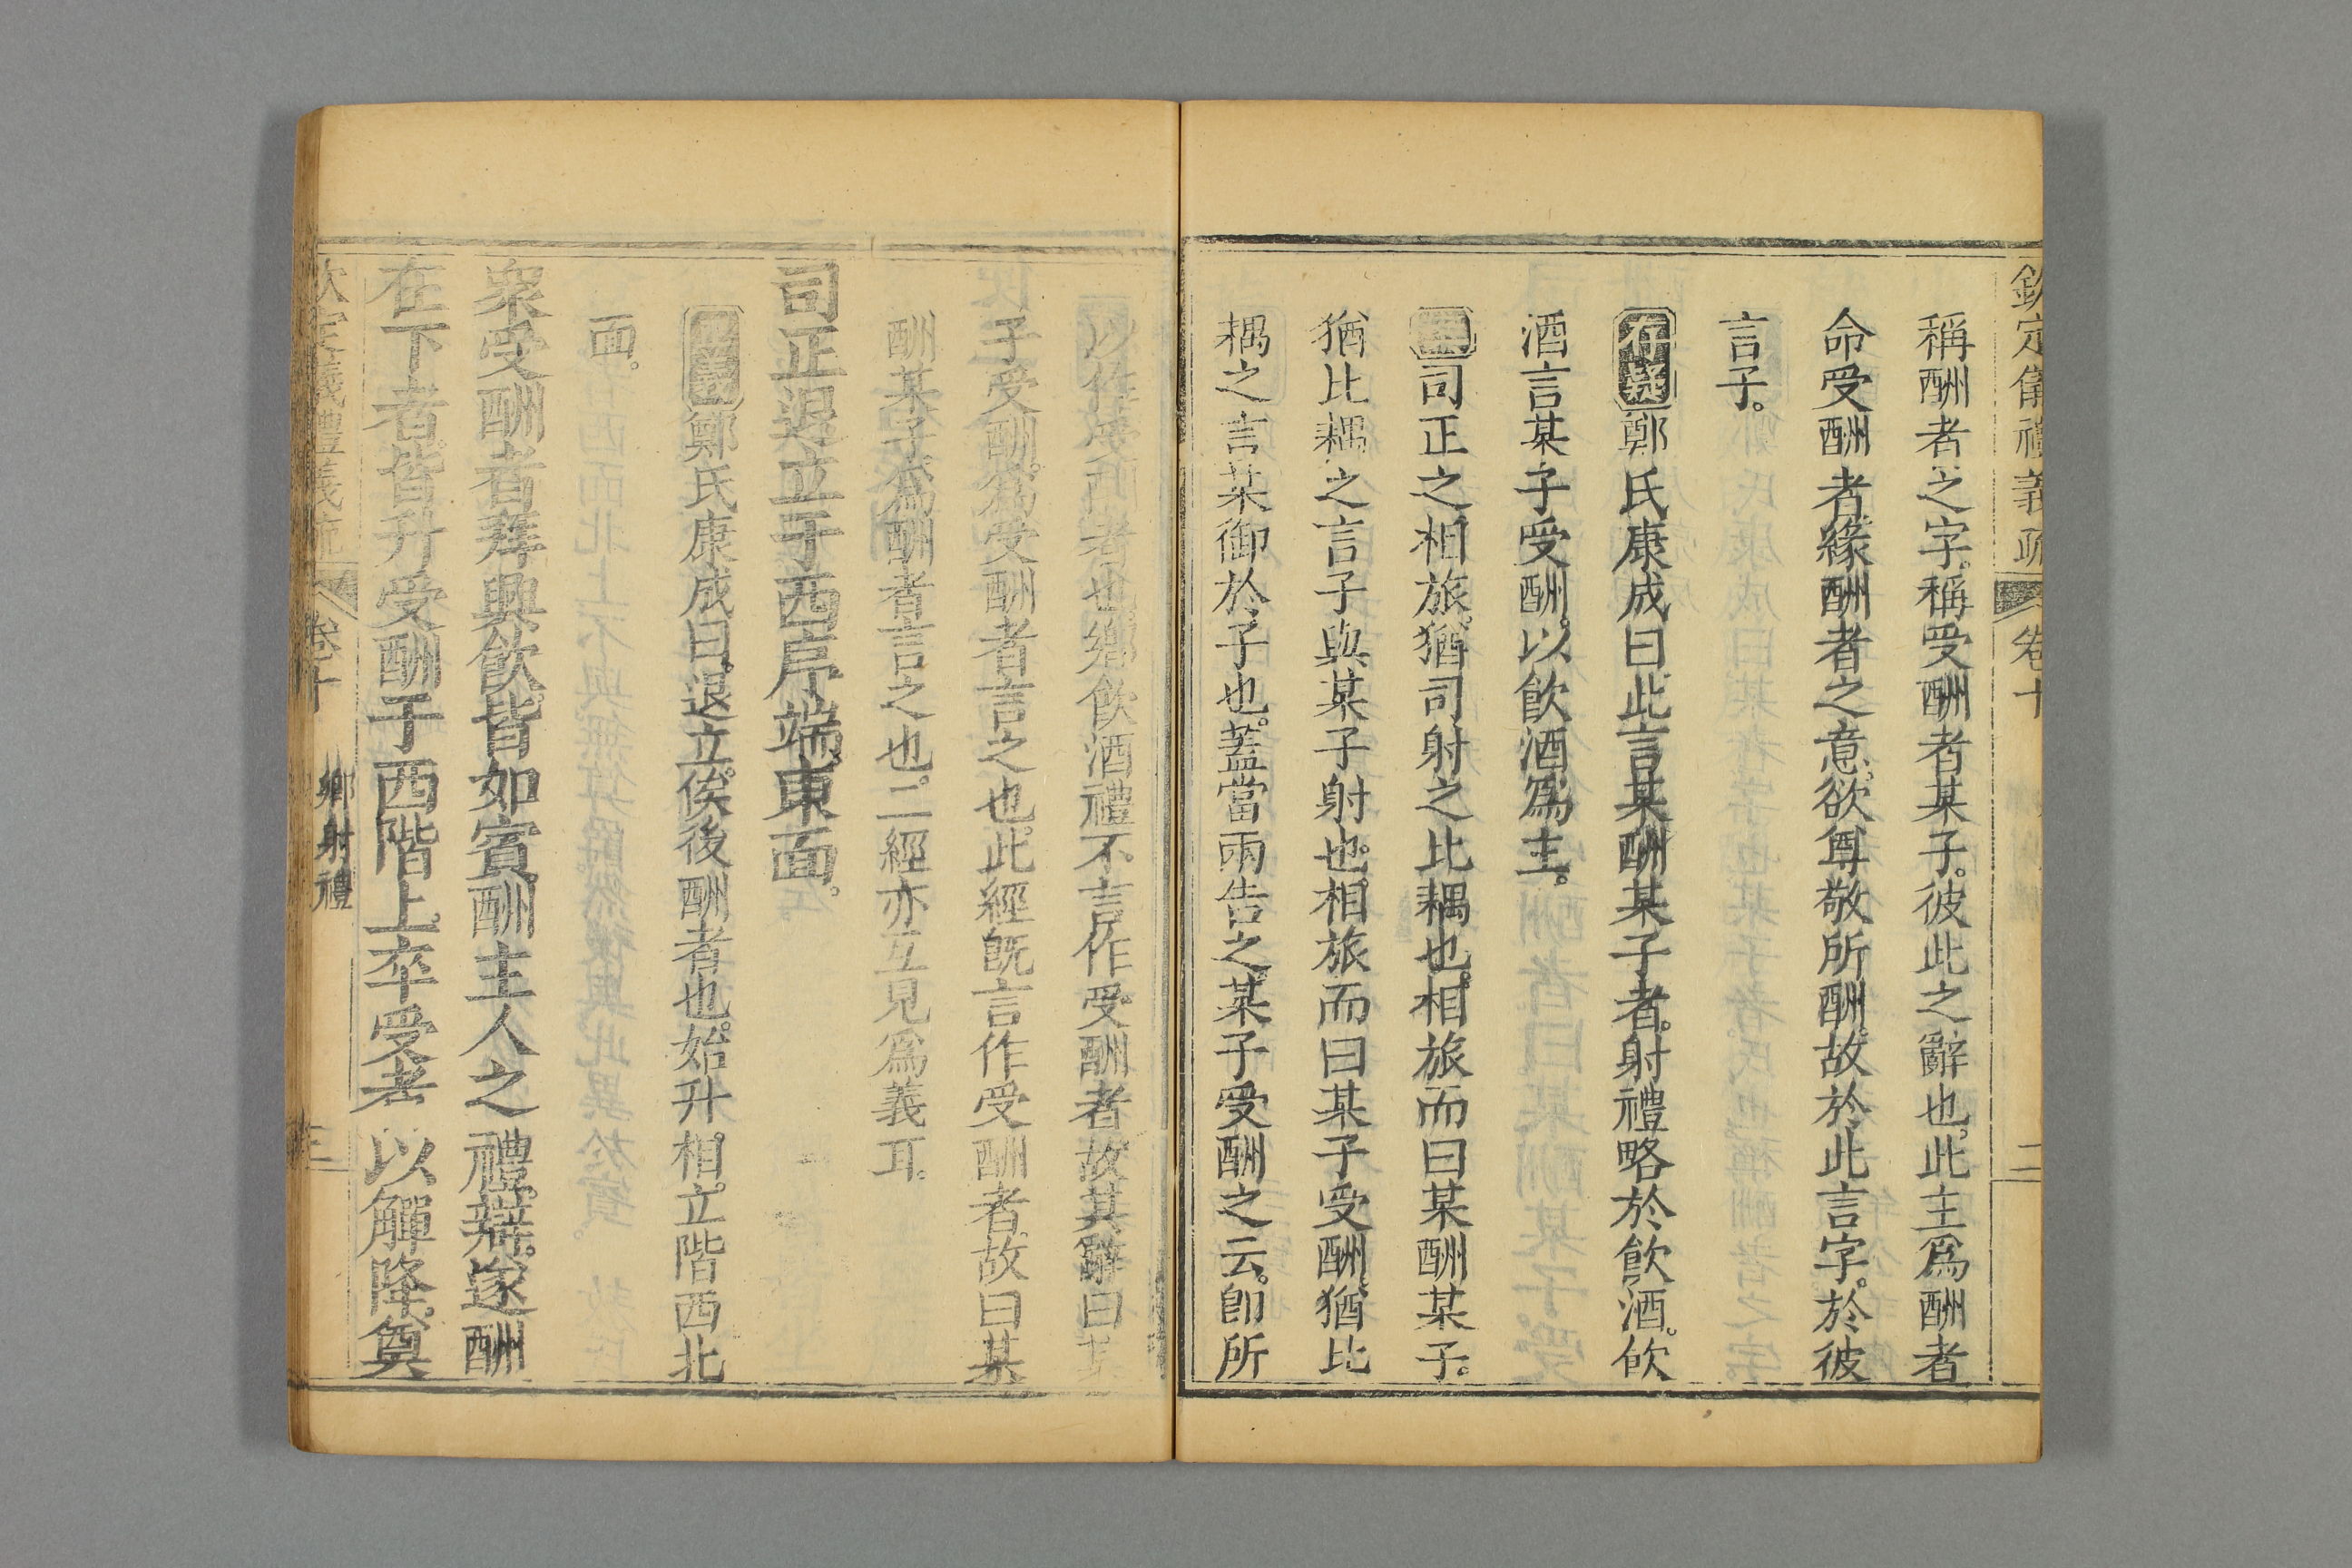 欽定儀禮義疏 卷十 二
稱酬者之字。稱受酬者某子。彼此之辭也。此主爲酬者
命受酬者。緣酬者之意。欲尊敬所酬。故於此言字。於彼
言子。
存疑鄭氏康成曰。此言某酬某子者。射禮略於飲酒。飲
酒言某子受酬。以飲酒爲主。
司正之相旅。猶司射之比耦也。相旅而曰某酬某子。
猶比耦之言子與某子射也。相旅而曰某子受酬。猶比
耦之言某御於子也。蓋當兩告之。某子受酬之云。卽所
以作受酬者也。鄉飲酒禮不言作受酬者。故其辭曰某
子受酬。爲受酬者言之也。此經既言作受酬者。故曰某
酬某子。爲酬者言之也。二經亦互見爲義耳。
司正退立于西序端。東面。
鄭氏康成曰。退立。俟後酬者也。始升相。立階西北
面。
衆受酬者拜興飲。皆如賓酬主人之禮。辯。遂酬
在下者。皆升受酬于西階上。卒受者以觶降。奠
欽定儀禮義疏 卷十 鄉射禮 三